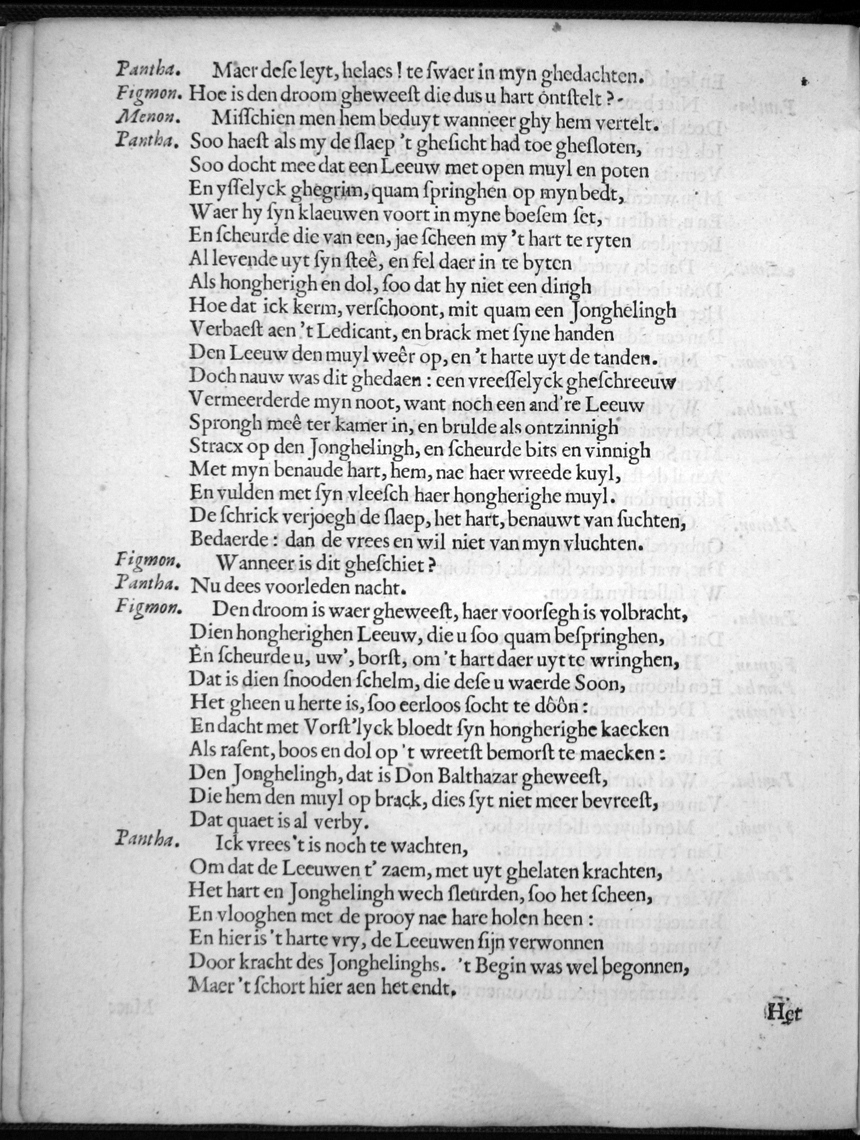 Pantha. Maer deſe leyt, helaes! te ſwaer in myn ghedachten.
Figmon. Hoe is den droom gheweeſt die dus u hart ontſtelt?
Menon. Miſſchien men hem beduyt wanneer ghy hem vertelt.
Pantha. Soo haeſt als my de ſlaep 't gheſicht had toe gheſloten,
Soo docht mee dat een Leeuw met open muyl en poten
En yſſelyck ghegrim, quam ſpringhen op myn bedt,
Waer hy ſyn klaeuwen voort in myne boeſem ſet,
En ſcheurde die van een, jae ſcheen my 't hart te ryten
Al levende uyt ſyn ſteê, en fel daer in te byten
Als hongherigh en dol, ſoo dat hy niet een dingh
Hoe dat ick kerm, verſchoont, mit quam een Jonghelingh
Verbaeſt aen 't Ledicant, en brack met ſyne handen
Den Leeuw den muyl weêr op, en 't harte uyt de tanden.
Doch nauw was dit ghedaen: een vreeſſelyck gheſchreeuw
Vermeerderde myn noot, want noch een and're Leeuw
Sprongh meê ter kamer in, en brulde als ontzinnigh
Stracx op den Jonghelingh, en ſcheurde bits en vinnigh
Met myn benaude hart, hem, nae haer wreede kuyl,
En vulden met ſyn vleeſch haer hongherighe muyl.
De ſchrick verjoegh de ſlaep, het hart, benauwt van ſuchten,
Bedaerde: dan de vrees en wil niet van myn vluchten.
Figmon. Wanneer is dit gheſchiet?
Pantha. Nu dees voorleden nacht.
Figmon. Den droom is waer gheweeſt, haer voorſegh is volbracht,
Dien hongherighen Leeuw, die u ſoo quam beſpringhen,
En ſcheurde u, uw', borſt, om 't hart daer uyt te wringhen,
Dat is dien ſnooden ſchelm, die deſe u waerde Soon,
Het gheen u herte is, ſoo eerloos ſocht te dôôn:
En dacht met Vorſt'lyck bloedt ſyn hongherighe kaecken
Als raſent, boos en dol op 't wreetſt bemorſt te maecken:
Den Jonghelingh, dat is Don Balthazar gheweeſt,
Die hem den muyl op brack, dies ſyt niet meer bevreeſt,
Dat quaet is al verby.
Pantha. Ick vrees 't is noch te wachten,
Om dat de Leeuwen t' zaem, met uyt ghelaten krachten,
Het hart en Jonghelingh wech ſleurden, ſoo het ſcheen,
En vlooghen met de prooy nae hare holen heen:
En hier is 't harte vry, de Leeuwen ſijn verwonnen
Door kracht des Jonghelinghs. 't Begin was wel begonnen,
Maer 't ſchort hier aen het endt.
Het